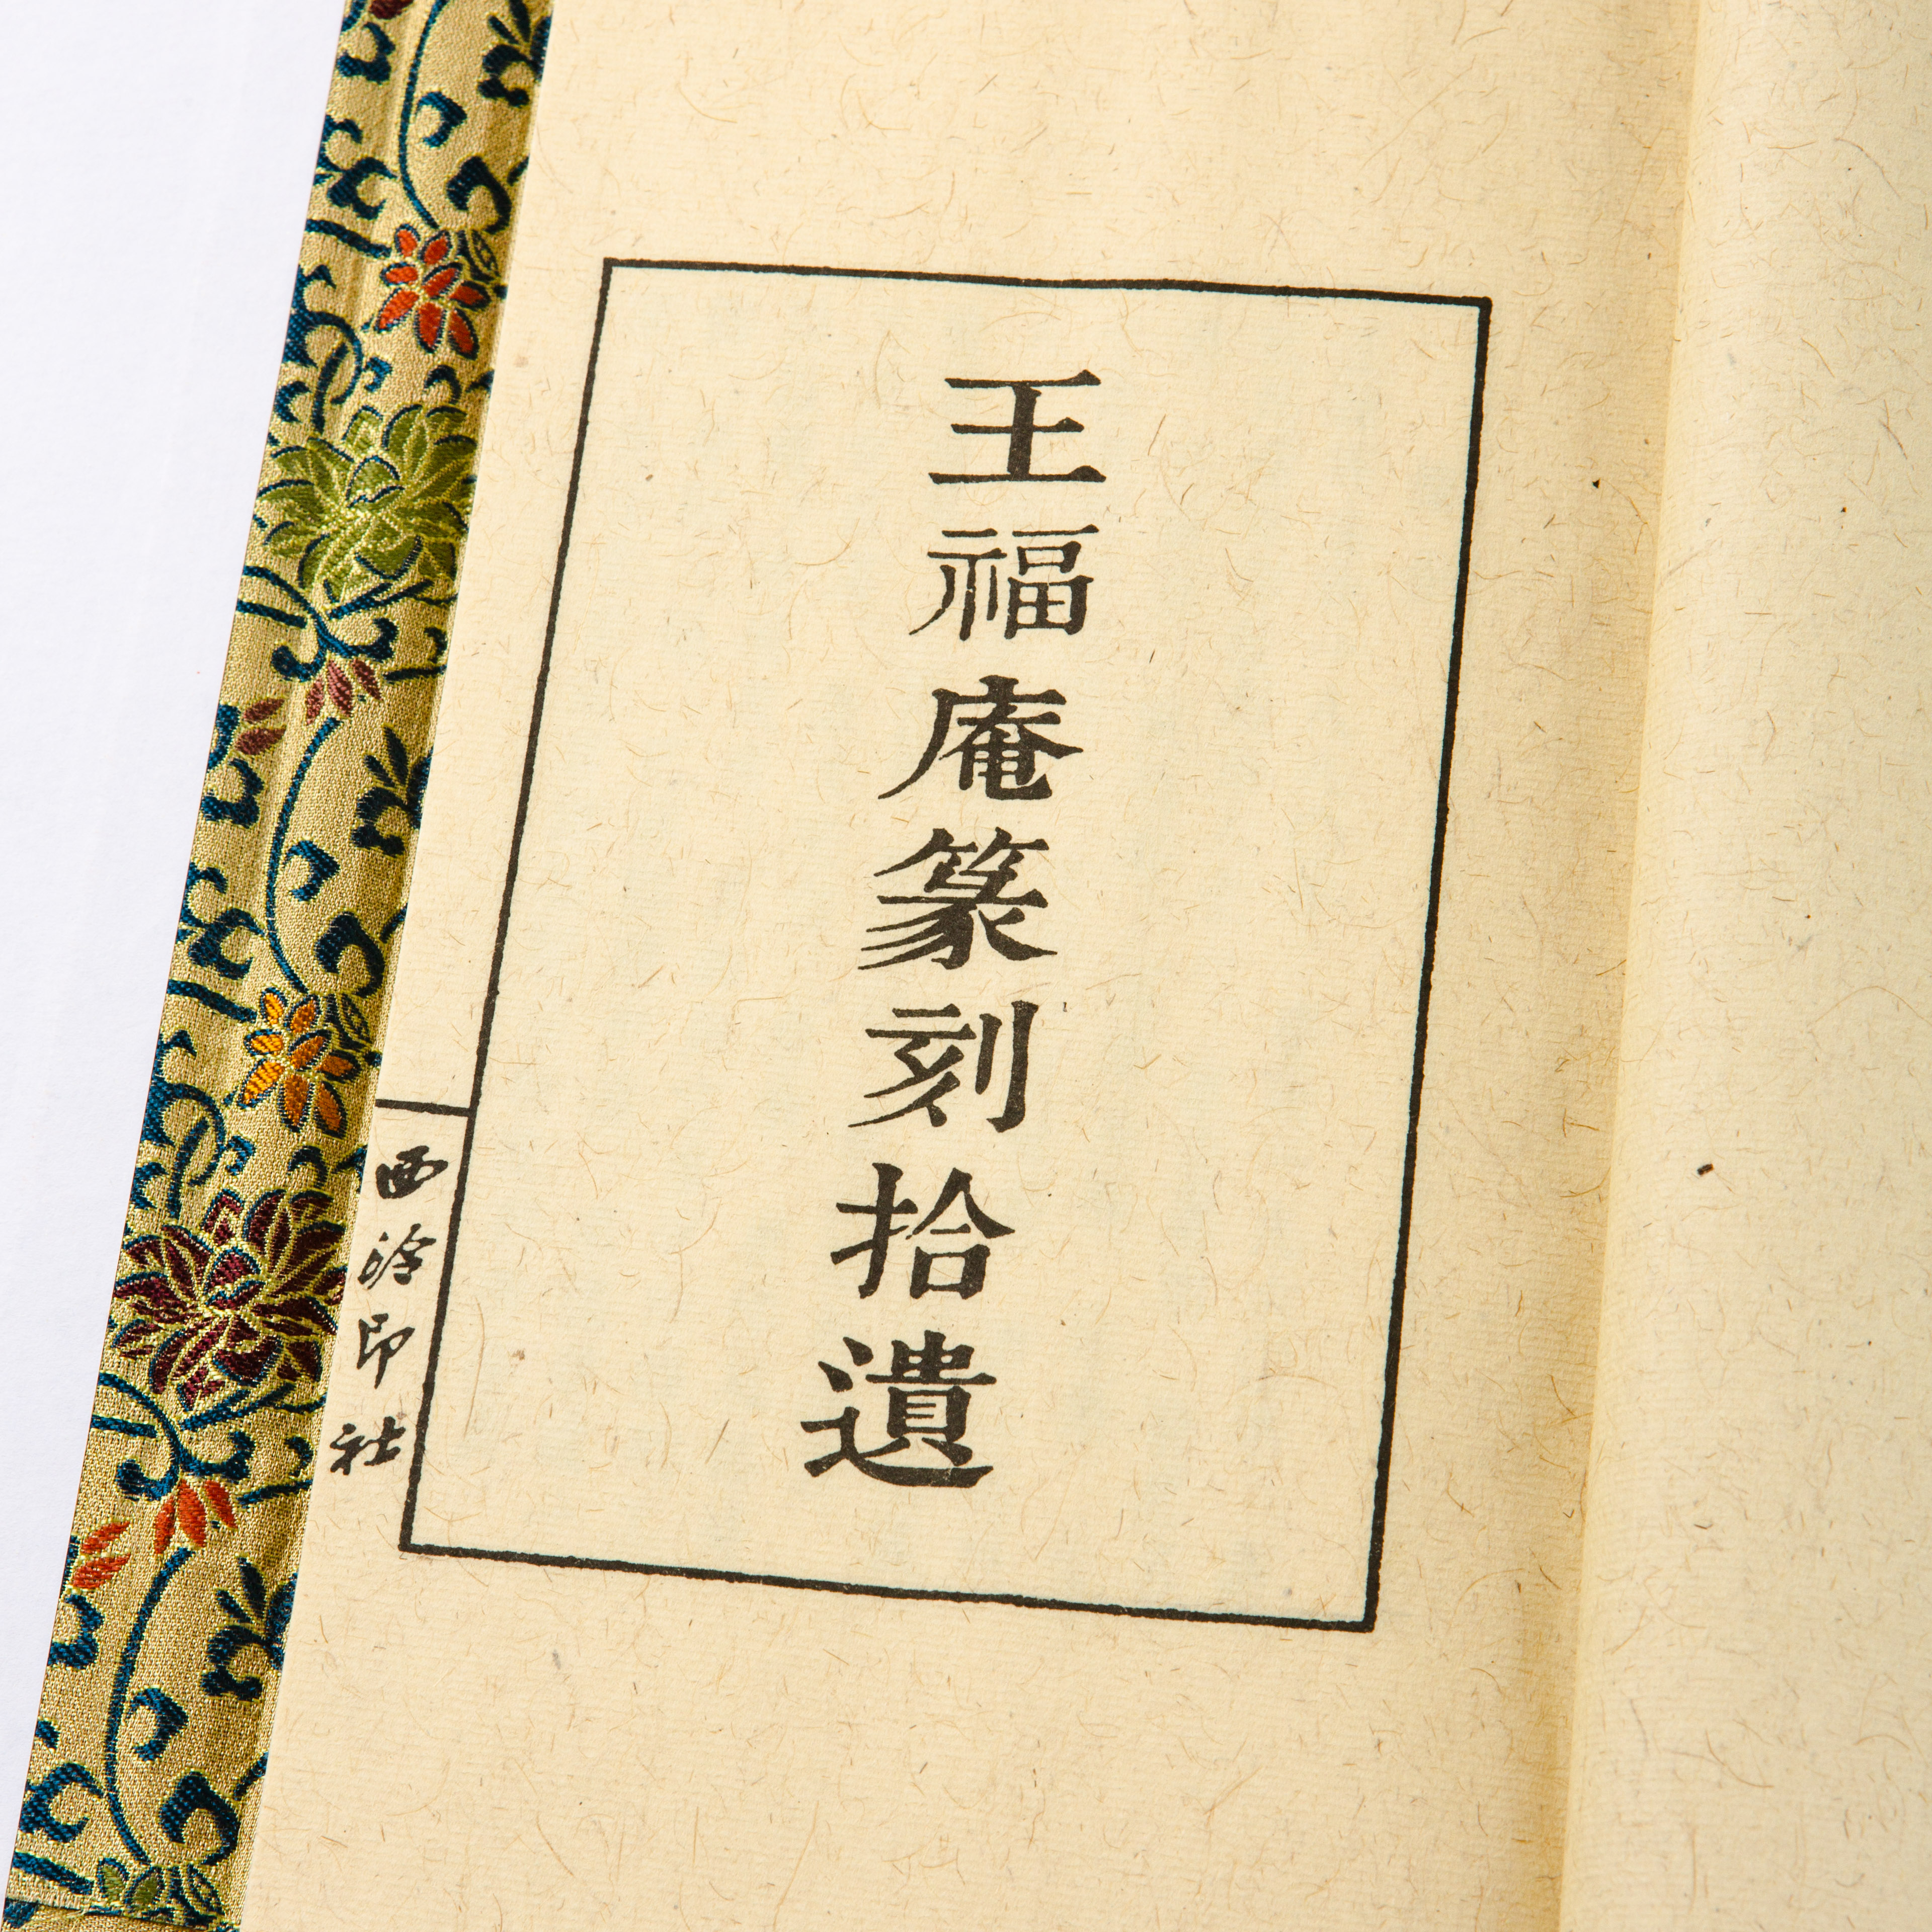 王福庵篆刻拾遺
西泠印社